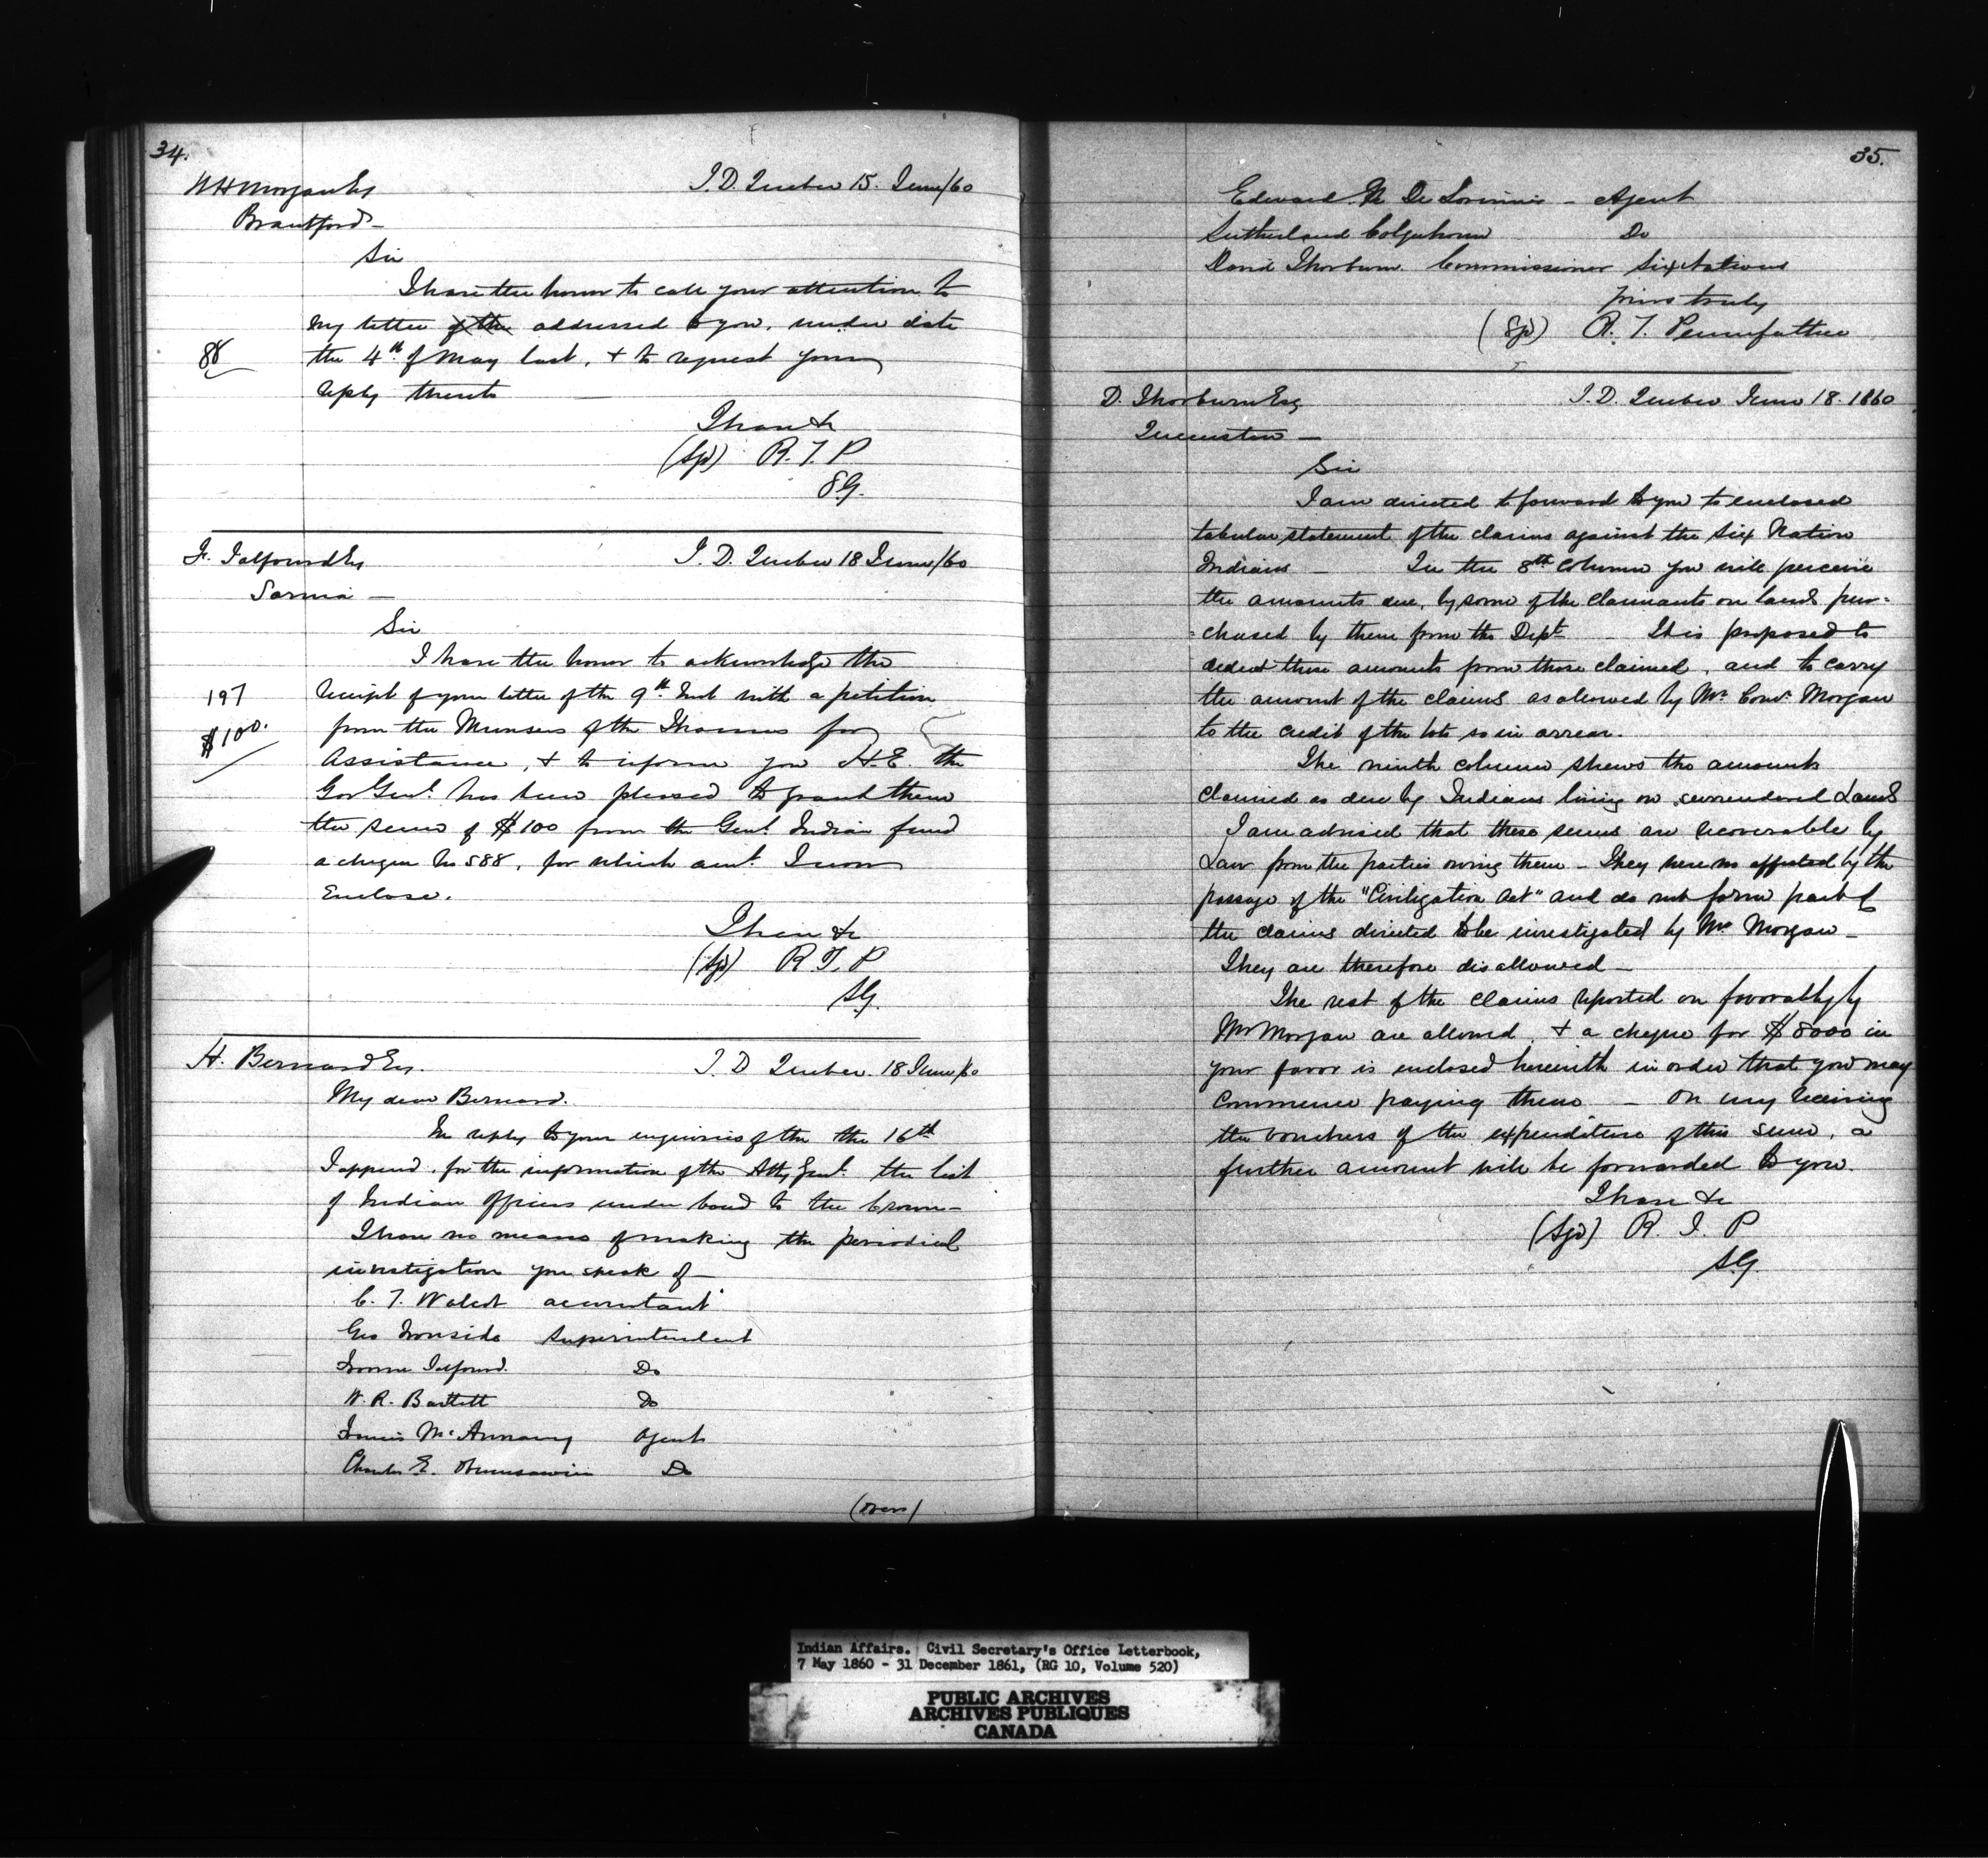 34.
W H Morgan Esq
I. D. Quebec 15. June/60
Brantford
Sir
I have the honor to call your attention to
my letter of the addressed to you, under date
88
the 4th of May last, & to request your
reply thereto
I have &c
(Sgd) R. T. P
S.G.
F. Talfourd Esq
I. D. Quebec 18 June/60
Sarnia —
Sir
I have the honor to acknowledge the
197
receipt of your letter of the 9th Inst with a petition
$100.
from the Munsees of the Thames for
Assistance, & to inform you H.E. the
Gov Genl. has been pleased to grant them
the sum of $100 from the Genl. Indian fund
a cheque No 588, for which amt. I now
Enclose.
I have &c
(Sgd) R T. P
S.G.
H. Bernard Esq.
I. D Quebec 18 June/60
My dear Bernard.
In reply to your enquiries of the the 16th
I append, for the information of the Atty Genl. the list
of Indian Officers under bond to the Crown —
I have no means of making the periodical
investigation you speak of —
C. T. Walcot accountant
Geo Ironside Superintendent
Froome Talfourd. Do
W. R. Bartlett Do
Francis McAnnany Agent
Charles E. Do
(over)
35.
Edward N De Lorimier — Agent
Sutherland Colquhoun Do
David Thorburn. Commissioner Six Nations
yours truly
(Sgd) R. T. Pennefather
D. Thorburn Esq
I. D. Quebec June 18. 1860
Queenston —
Sir
I am directed to forward to you to enclosed
tabular statement of the claims against the Six Nation
Indians — In the 8th Column you will perceive
the amounts due, by some of the Claimants on lands pur-
-chased by them from the Dept — It is proposed to
deduct these amounts from those claimed, and to carry
the amount of the claims as allowed by Mr. Morgan
to the credit of the lots so in arrear.
The ninth column shews the amounts
claimed as due by Indians living on surrendered Lands
I am advised that these sums are recoverable by
Law from the parties owing them — They were no affected by the
passage of the "Civilization Act" and do not form part of
the claims directed to be investigated by Mr Morgan —
They are therefore disallowed —
The rest of the claims reported on favorably by
Mr Morgan are allowed, & a cheque for $8000 in
your favor is enclosed herewith in order that you may
commence paying them — On my receiving
the vouchers of the expenditure of this sum, a
further amount will be forwarded to you.
I have &c
(Sgd) R. T. P
S.G.
Indian Affairs. Civil Secretary's Office Letterbook,
7 May 1860 - 31 December 1861, (RG 10, Volume 520)
PUBLIC ARCHIVES
ARCHIVES PUBLIQUES
CANADA